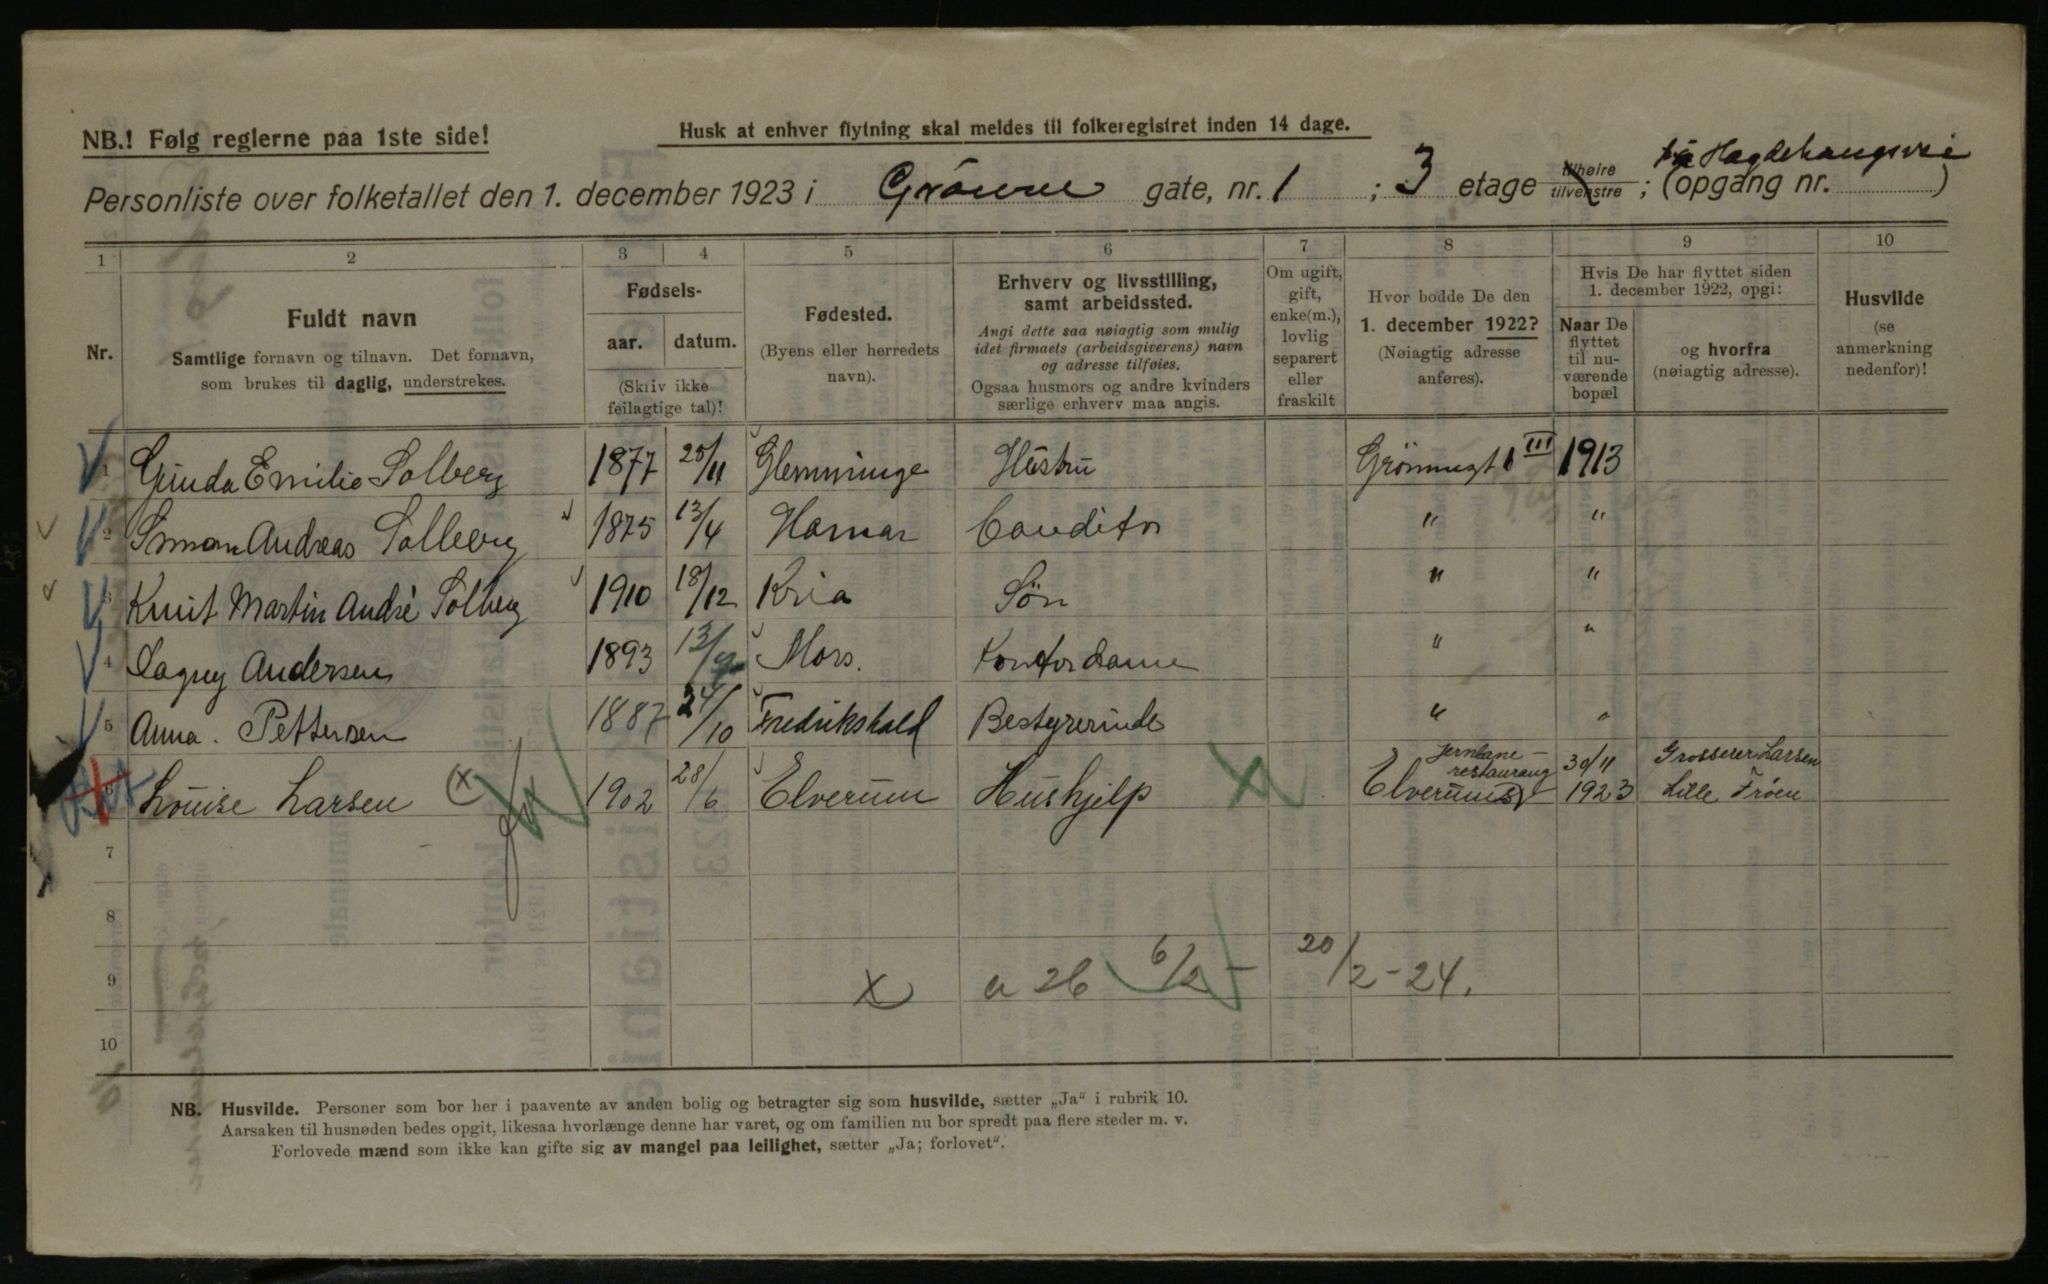 NB.! Følg reglerne paa 1ste side!
Husk at enhver flytning skal meldes til folkeregistret inden 14 dage.
fra Hægdehaugsvei
Personliste over folketallet den 1. december 1923 i Grönne gate, nr. 1 ; 3 etage tilhøire tilvenstre ; (opgang nr. )
1 2 3 4 5 6 7 8 9 10
Nr.
Fuldt navn
Samtlige fornavn og tilnavn. Det fornavn,
som brukes til daglig, understrekes.
Fødsels-
aar. datum.
(Skriv ikke
feilagtige tal)!
Fødested.
(Byens eller herredets
navn).
Erhverv og livsstilling,
samt arbeidssted.
Angi dette saa nøiagtig som mulig
idet firmaets (arbeidsgiverens) navn
og adresse tilføies.
Ogsaa husmors og andre kvinders
særlige erhverv maa angis.
Om ugift,
gift,
enke(m.),
lovlig
separert
eller
fraskilt
Hvor bodde De den
1. december 1922?
(Nøiagtig adresse
anføres).
Hvis De har flyttet siden
1. december 1922, opgi:
Naar De
flyttet
til nu-
værende
bopæl
og hvorfra
(nøiagtig adresse).
Husvilde
(se
anmerkning
nedenfor)!
1 Gunda Emilie Solberg 1877 25/11 Glemminge Hustru Grönnegt 1 III 1913
2 Simon Andreas Solberg 1875 13/4 Hamar Conditor " "
3 Knut Martin André Solberg 1910 18/12 Kria Sön " "
4 Dagny Andersen 1893 13/9 Mors. Kontordame " "
5 Anna. Pettersen 1887 24/10 Fredrikshald Bestyrerinde " "
6 Louise Larsen (x) 1902 28/6 Elverum Hushjelp Jernbane-restaurang Elverum 30/11 1923 Grosserer Larsen Lille Frøen
7
8
9 x a 26 6/2 - 20/2-24.
10
NB. Husvilde. Personer som bor her i paavente av anden bolig og betragter sig som husvilde, sætter „Ja“ i rubrik 10.
Aarsaken til husnøden bedes opgit, likesaa hvorlænge denne har varet, og om familien nu bor spredt paa flere steder m. v.
Forlovede mænd som ikke kan gifte sig av mangel paa leilighet, sætter „Ja; forlovet“.